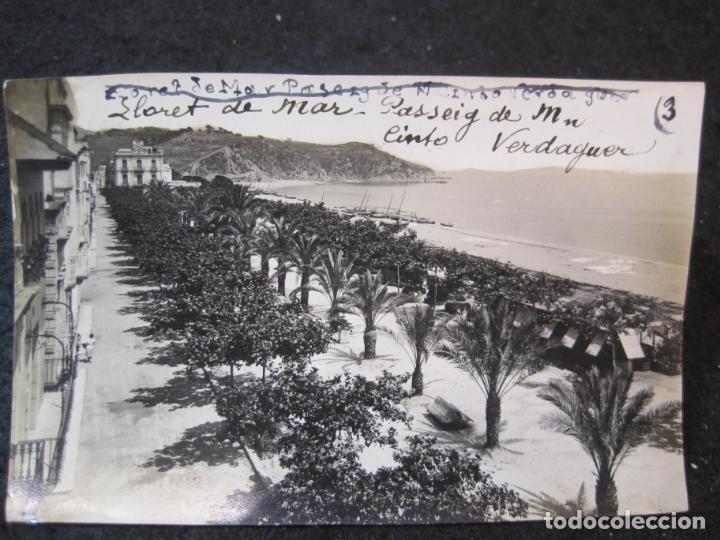 Lloret de Mar Paseig de M Cinto Verdaguer
Lloret de Mar - Passeig de Mn
Cinto Verdaguer
3
todocoleccion.net